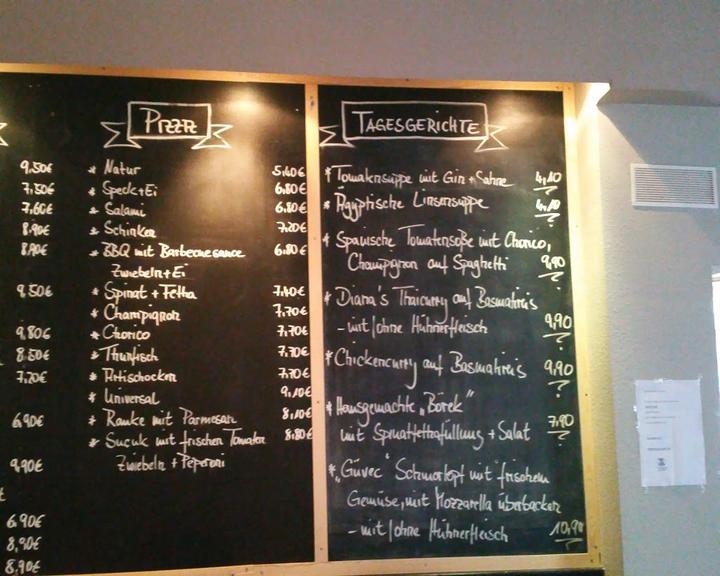 9,50€
7,50€
7,60€
8,90€
8,90€
9,50€
9,80€
8,50€
7,20€
6,90€
9,90€
6,90€
8,90€
8,90€
PIZZE
* Natur 5,40€
* Speck+Ei 6,80€
* Salami 6,80€
* Schinken 7,20€
* BBQ mit Barbecuesauce 6,80€
Zwiebeln+Ei
* Spinat + Fetha 7,40€
* Champignon 7,70€
* Chorico 7,70€
* Thunfisch 7,70€
* Artischocken 7,70€
* Universal 9,10€
* Rauke mit Parmesan 8,10€
* Sucuk mit frischen Tomaten 8,80€
Zwiebeln + Peperoni
TAGESGERICHTE
* Tomatensuppe mit Gin + Sahne 4,10
* Ägyptische Linsensuppe 4,10
* Spanische Tomatensoße mit Chorico,
Champignon auf Spaghetti 9,90
* Diana's Thaicurry auf Basmatireis
- mit/ohne Hühnerfleisch 9,90
* Chickencurry auf Basmatireis 9,90
* Hausgemachte „Börek"
mit Spinatfettafüllung + Salat 7,90
* „Güvec" Schmortopf mit frischem
Gemüse, mit Mozzarella überbacken
- mit/ohne Hühnerfleisch 10,90